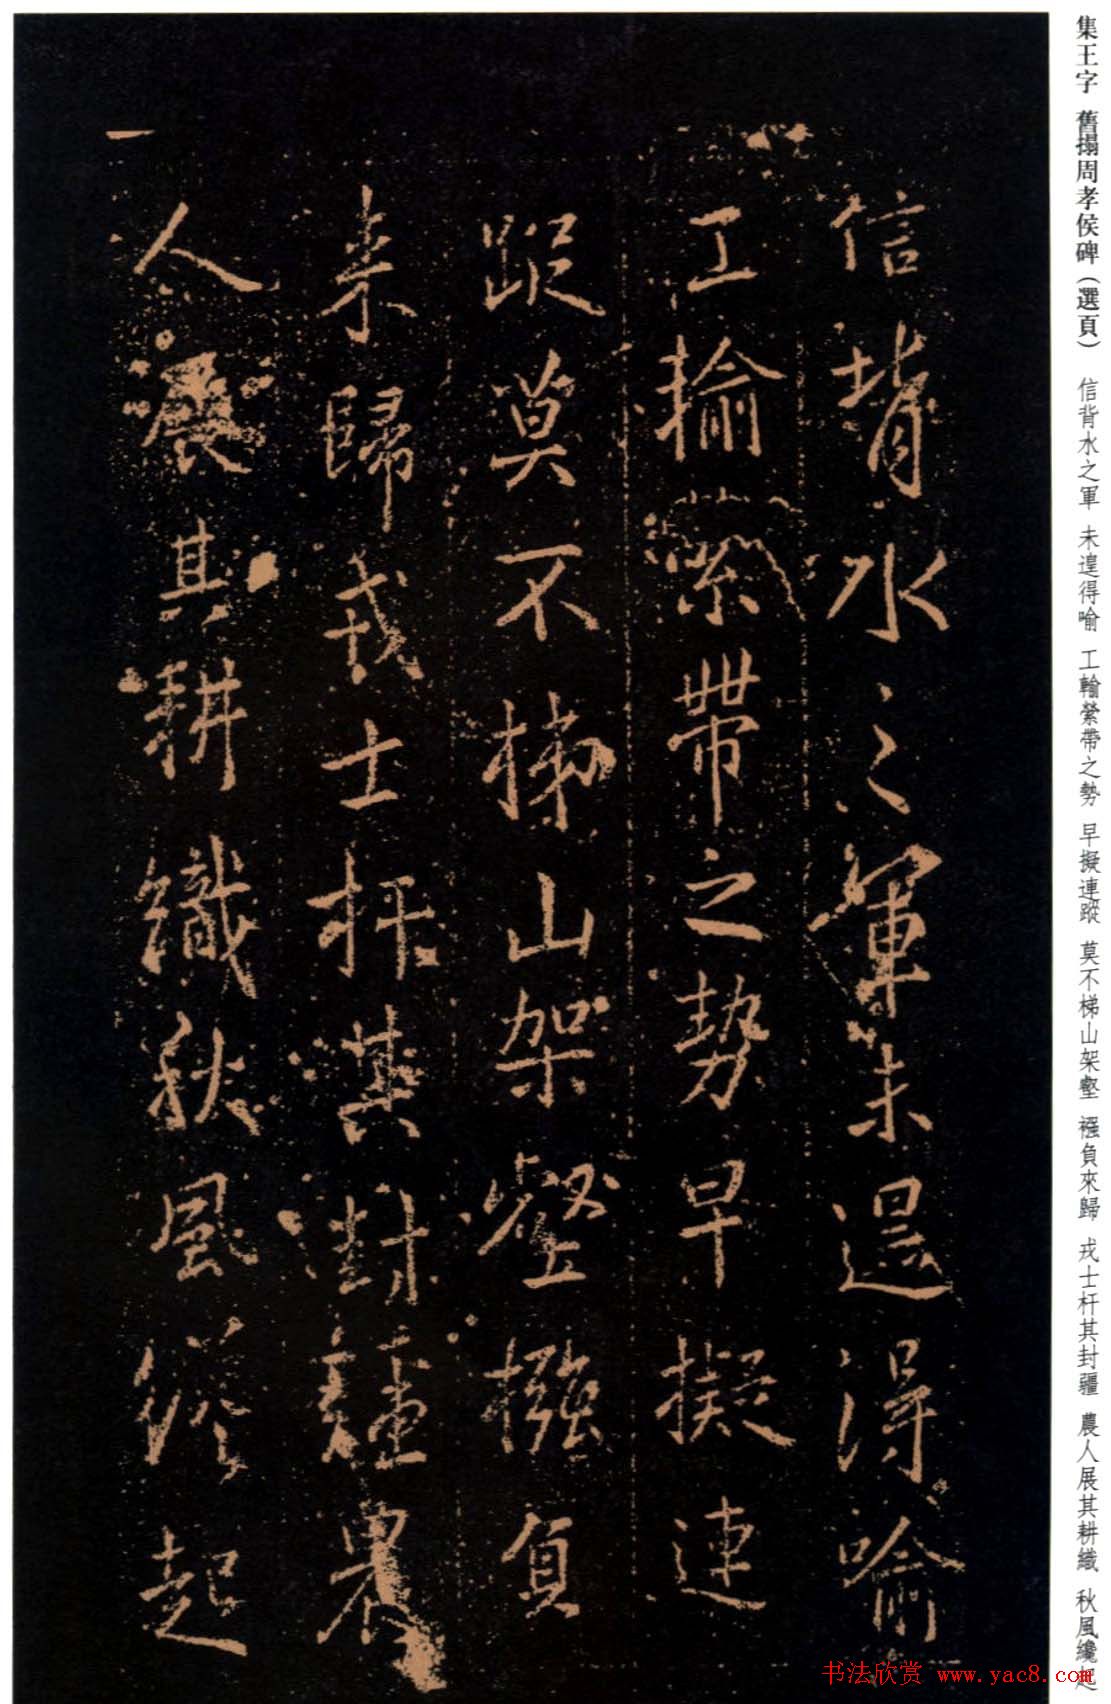 集王字 舊搨周孝侯碑（選頁） 信背水之軍 未遑得喻 工輸縈帶之勢 早擬連蹤 莫不梯山架壑 襁負來歸 戎士扞其封疆 農人展其耕織 秋風纔起
信背水之軍未遑得喻
工輸縈帶之勢早擬連
蹤莫不梯山架壑襁負
来歸戎士扞其封疆農
人展其耕織秋風纔起
书法欣赏 www.yac8.com